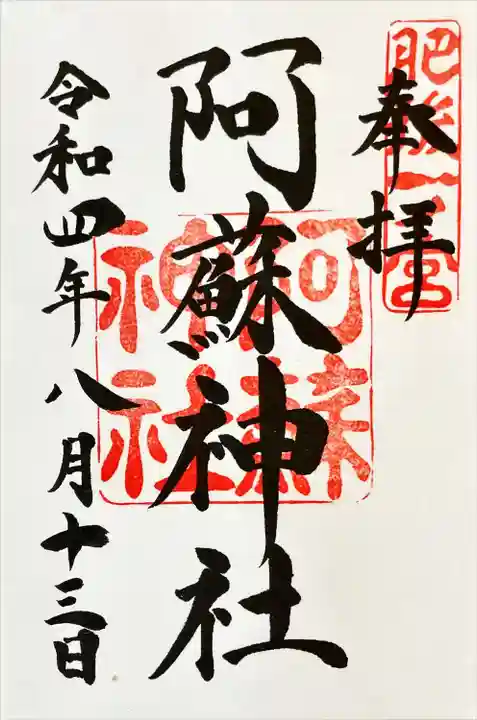 肥後一宮
奉拝
阿蘇神社
阿蘇神社
令和四年八月十三日